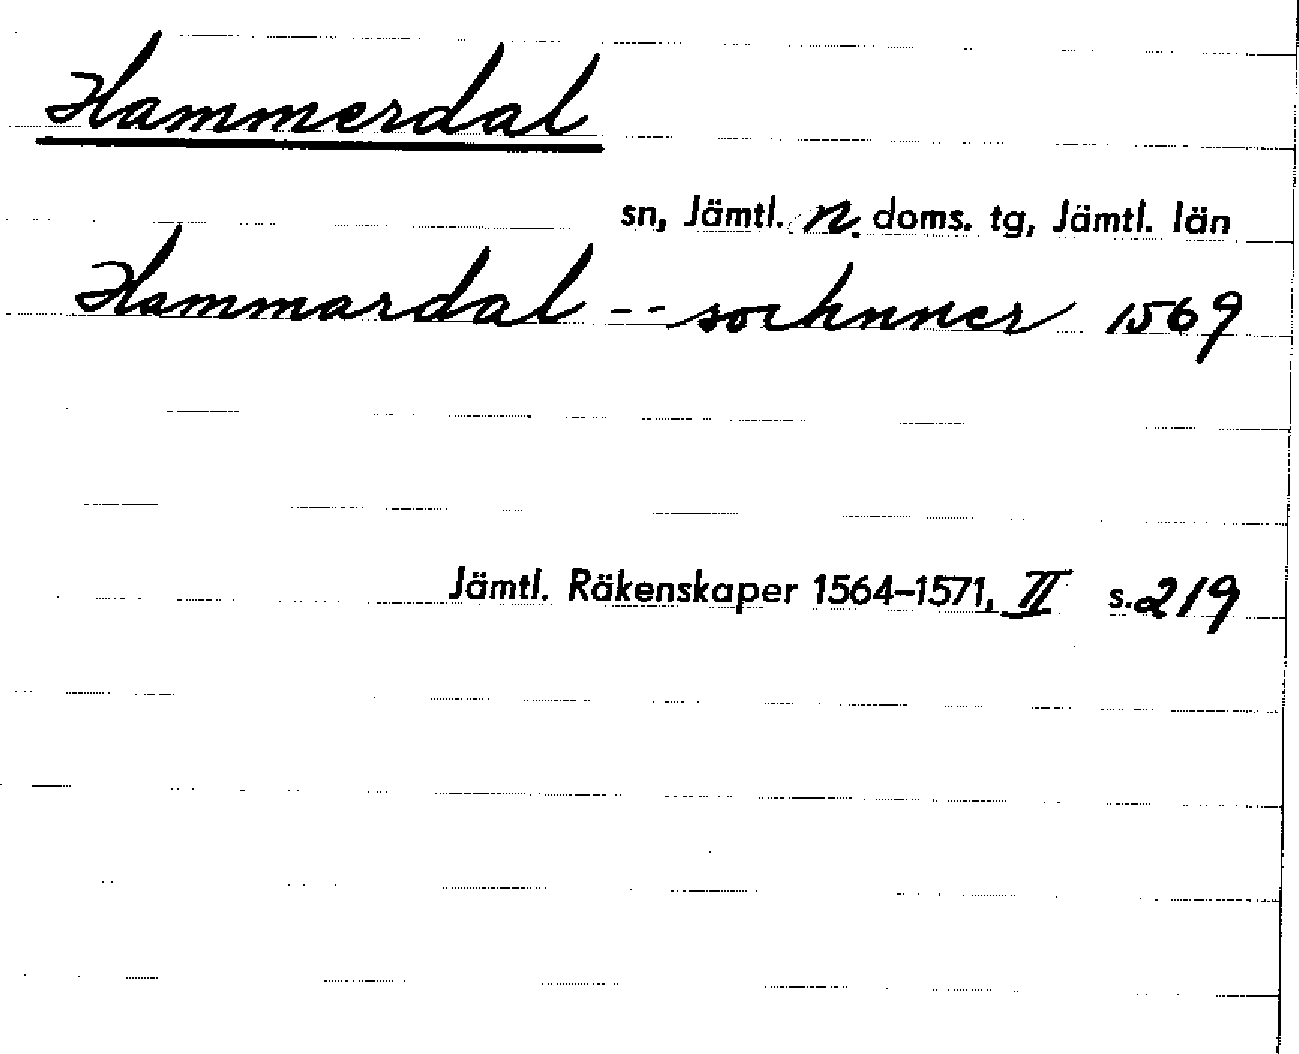 Hammerdal
sn, Jämtl. n. doms. tg, Jämtl. län
Hammardal -- sochnner 1569
Jämtl. Räkenskaper 1564–1571, II s. 219